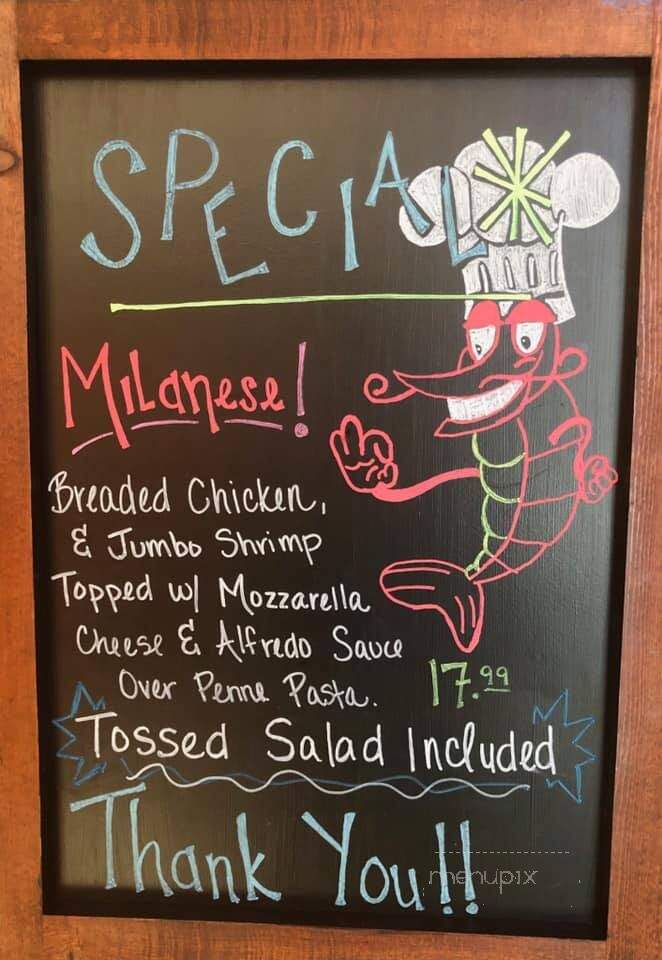 SPECIAL
Milanese!
Breaded Chicken,
& Jumbo Shrimp
Topped w/ Mozzarella
Cheese & Alfredo Sauce
Over Penne Pasta.
17.99
Tossed Salad Included
Thank You!!
menupix